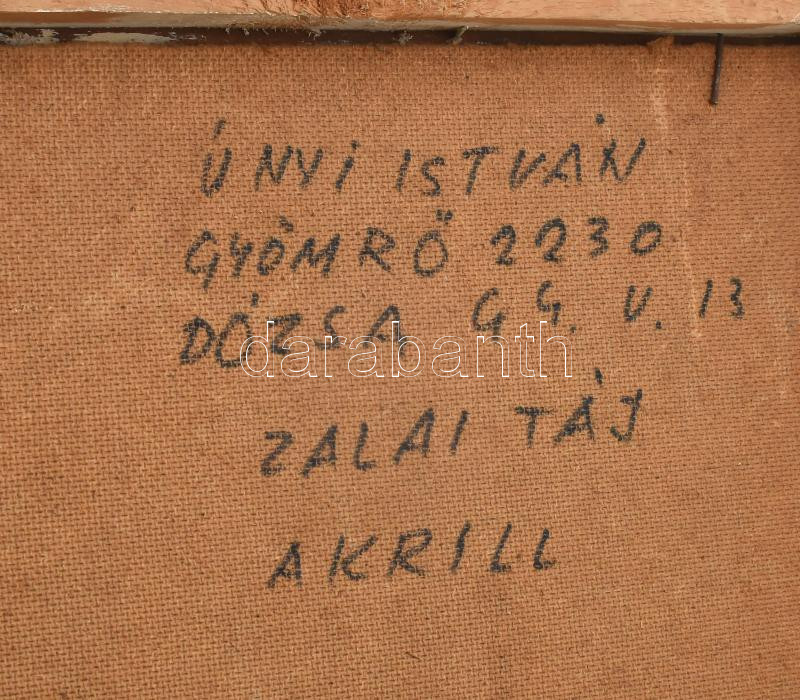 ÚNYI ISTVÁN
GYÖMRŐ 2230
DÓZSA G G. U. 13
darabanth
ZALAI TÁJ
AKRILL